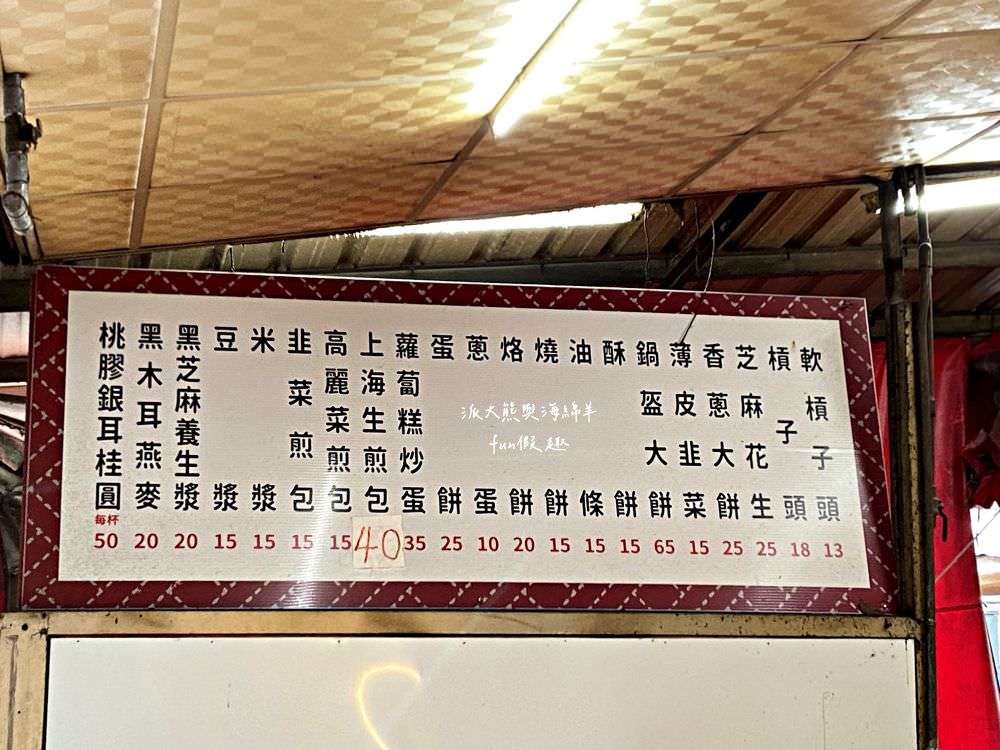 軟槓子頭 13
槓子頭 18
芝麻花生 25
香蔥大餅 25
薄皮韭菜 15
鍋盔大餅 65
酥餅 15
油條 15
燒餅 15
烙餅 20
蔥蛋 10
蛋餅 25
蘿蔔糕炒蛋 35
上海生煎包 40
高麗菜煎包 15
韭菜煎包 15
米漿 15
豆漿 15
黑芝麻養生漿 20
黑木耳燕麥 20
桃膠銀耳桂圓 每杯 50
派大熊與海綿羊
fun假趣